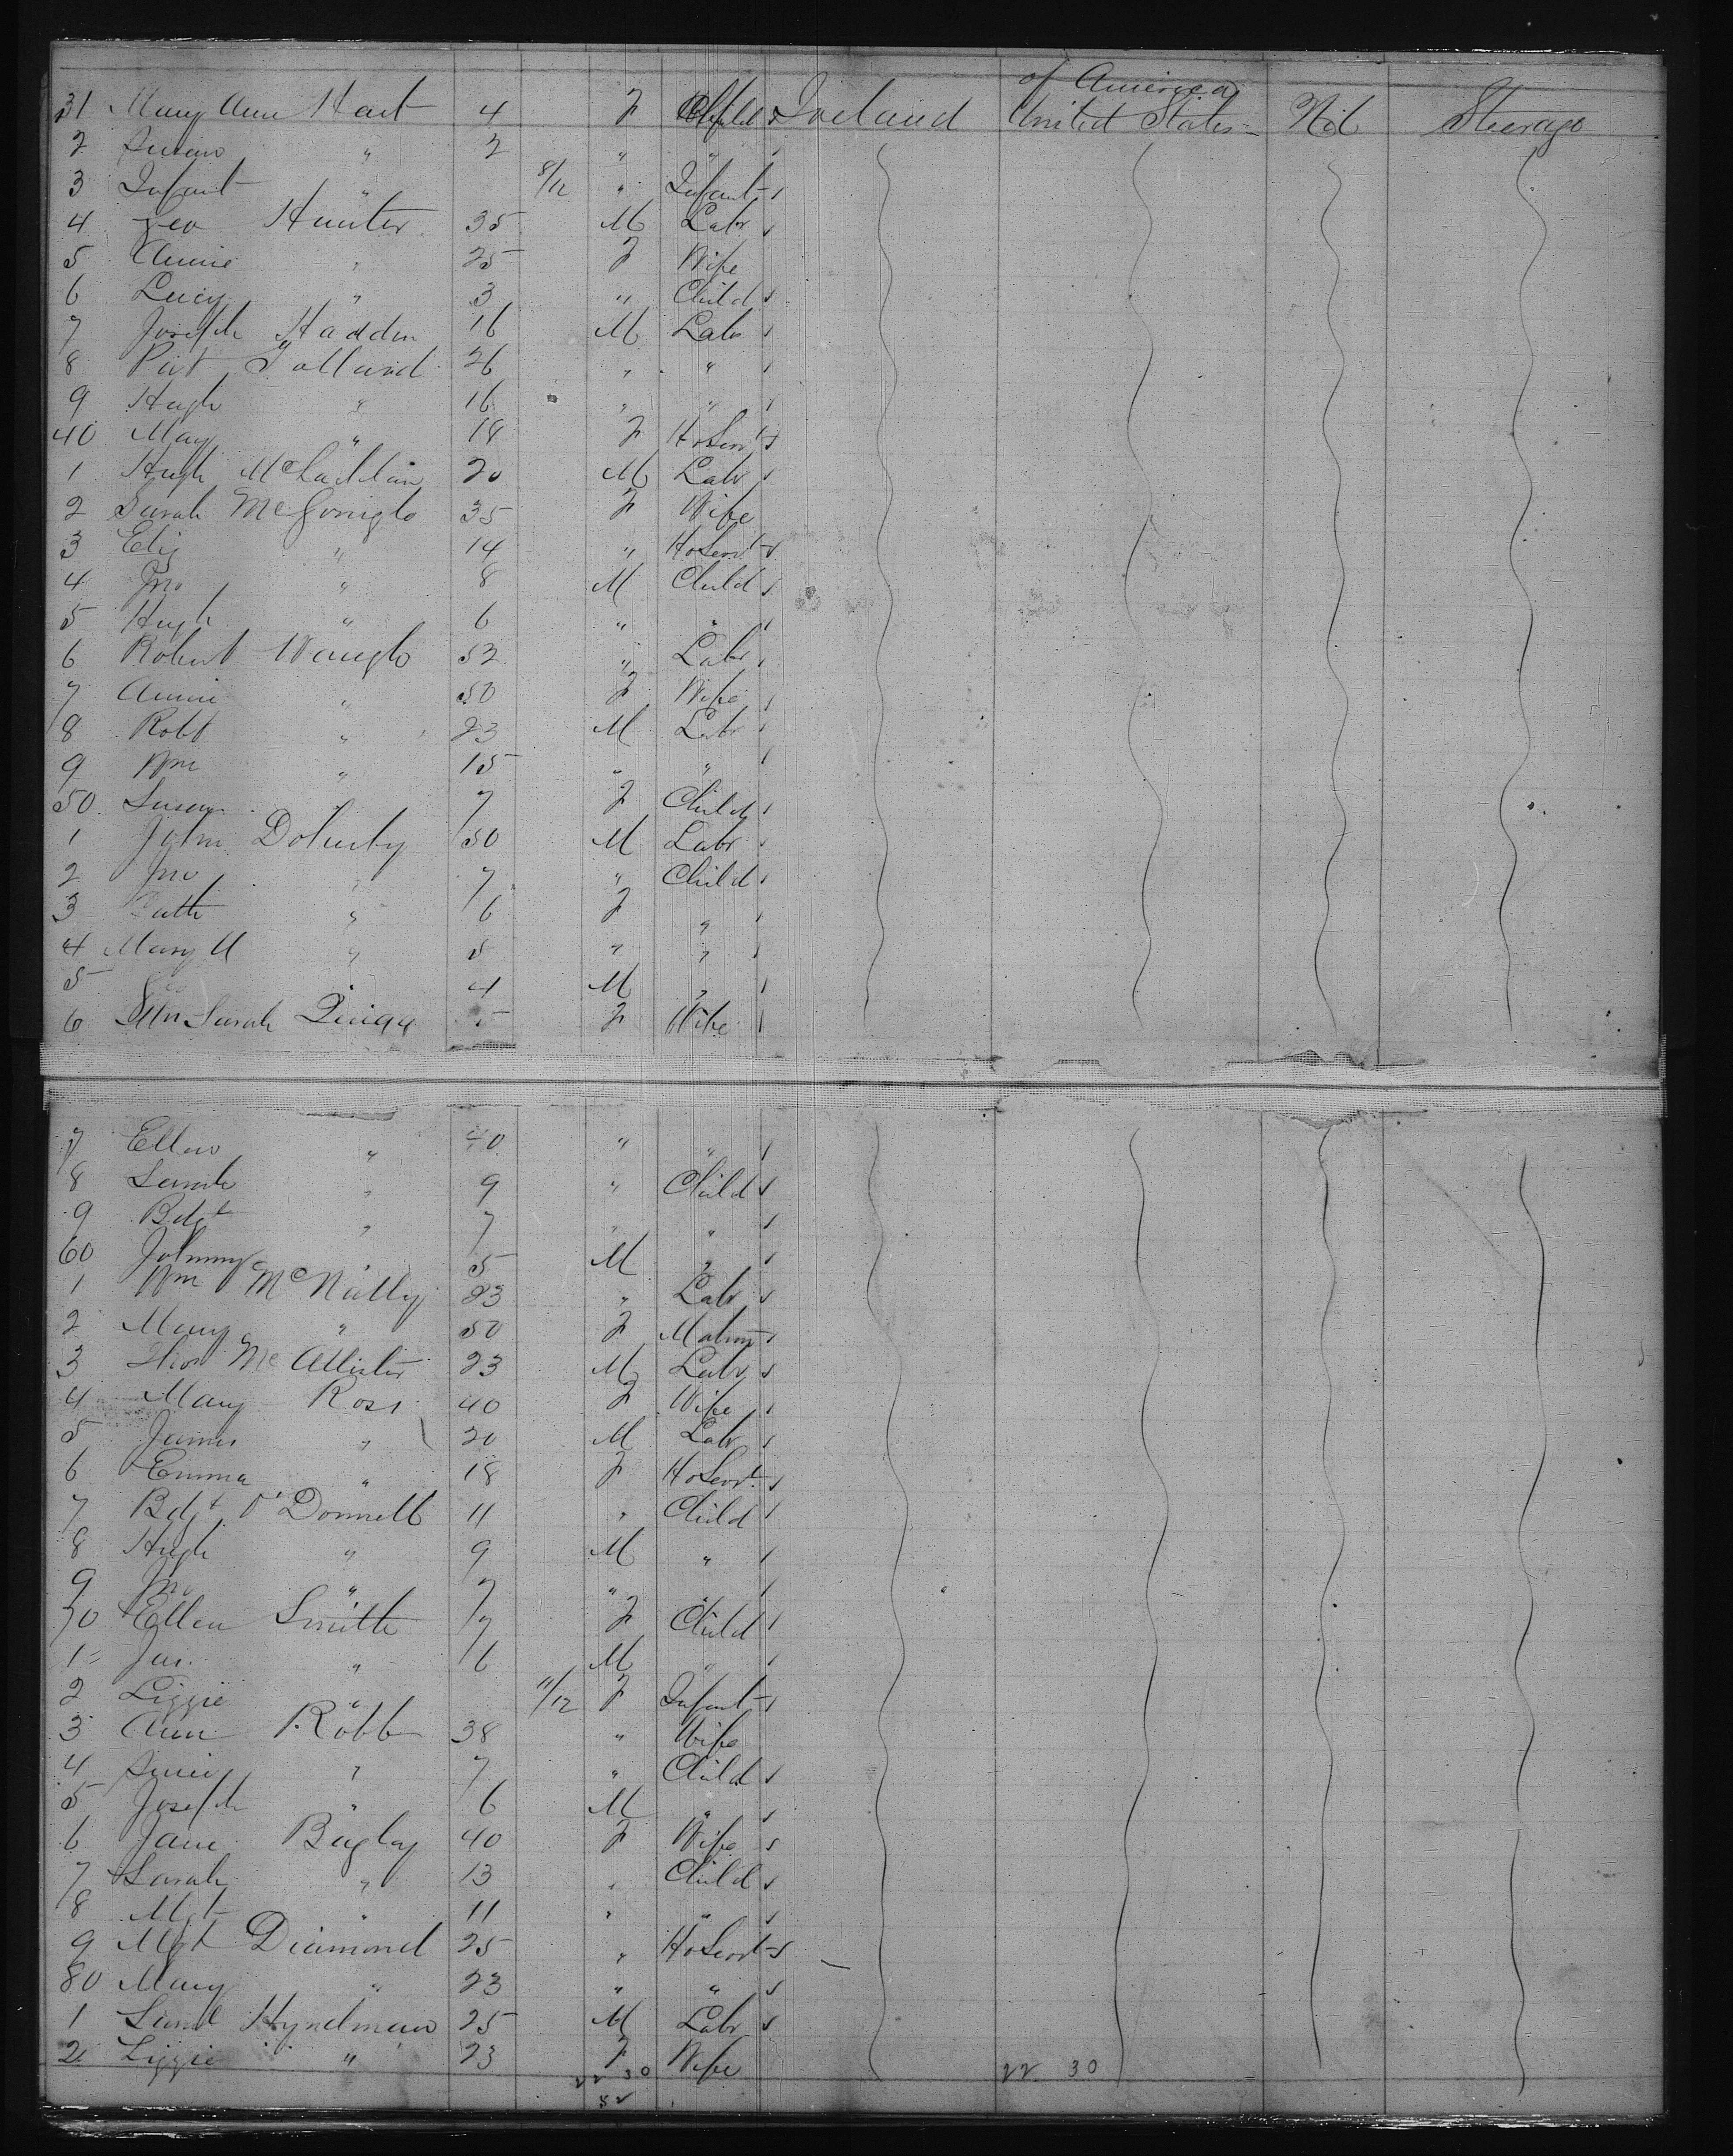 of America
31 Mary Ann Hart 4 F Child Ireland United States Nil Steerage
2 Susan " 2 " "
3 Infant " 8/12 " Infant
4 Geo Hunter 35 M Labr
5 Annie " 25 F Wife
6 Lucy " 3 " Child
7 Joseph Hadden 16 M Labr
8 Pat Tolland 26 " "
9 Hugh " 16 " "
40 May " 18 F HoServt
1 Hugh 20 M Labr
2 Sarah McGonigle 35 F Wife
3 Eliz " 14 " HoServt
4 Jno " 8 M Child
5 Hugh " 6 " "
6 Robert Waugh 52 " Labr
7 Annie " 50 F Wife
8 Robt " 23 M Labr
9 Wm " 15 " "
50 Susan " 7 F Child
1 John Doherty 50 M Labr
2 Jno " 7 " Child
3 Cath " 6 F "
4 Mary " 5 " "
5 4 M "
6 Mrs Sarah F Wife
7 Ellen " 40 " "
8 Sarah " 9 " Child
9 Bdgt " 7 " "
60 Johnny 5 M "
1 Wm McNally 23 " Labr
2 Mary " 50 F Matron
3 Thos McAllister 23 M Labr
4 Mary Ross 40 F Wife
5 James " 20 M Labr
6 Emma " 18 F HoServt
7 Bdgt O'Donnell 11 " Child
8 Hugh " 9 M "
9 Jno " 7 " "
70 Ellen Smith 7 F Child
1 Jas. " 6 M "
2 Lizzie " 11/12 F Infant
3 Ann Robb 38 " Wife
4 " 7 " Child
5 Joseph " 6 M "
6 Jane Bagley 40 F Wife
7 Sarah " 13 " Child
8 Mgt " 11 " "
9 Mgt Diamond 25 " HoServt
80 Mary " 23 " "
1 Saml Hyndman 25 M Labr
2 Lizzie " 23 F Wife
22 30 22 30
52